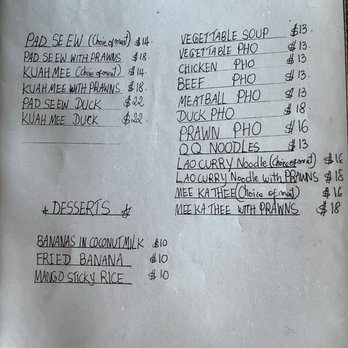 PAD SE EW (Choice of meat) $14.
PAD SE EW WITH PRAWNS $18
KUAH MEE (Choice of meat) $14
KUAH MEE WITH PRAWNS $18
PAD SE EW DUCK $22
KUAH MEE DUCK $22
DESSERTS
BANANAS IN COCONUT MILK $10
FRIED BANANA $10
MANGO STICKY RICE $10
VEGETTABLE SOUP $13
VEGETTABLE PHO $13
CHICKEN PHO $13
BEEF PHO $13
MEATBALL PHO $13
DUCK PHO $18
PRAWN PHO $16
QQ NOODLES $13
LAO CURRY Noodle (Choice of meat) $16
LAO CURRY Noodle WITH PRAWNS $18
MEE KA THEE (Choice of meat) $16
MEE KA THEE WITH PRAWNS $18